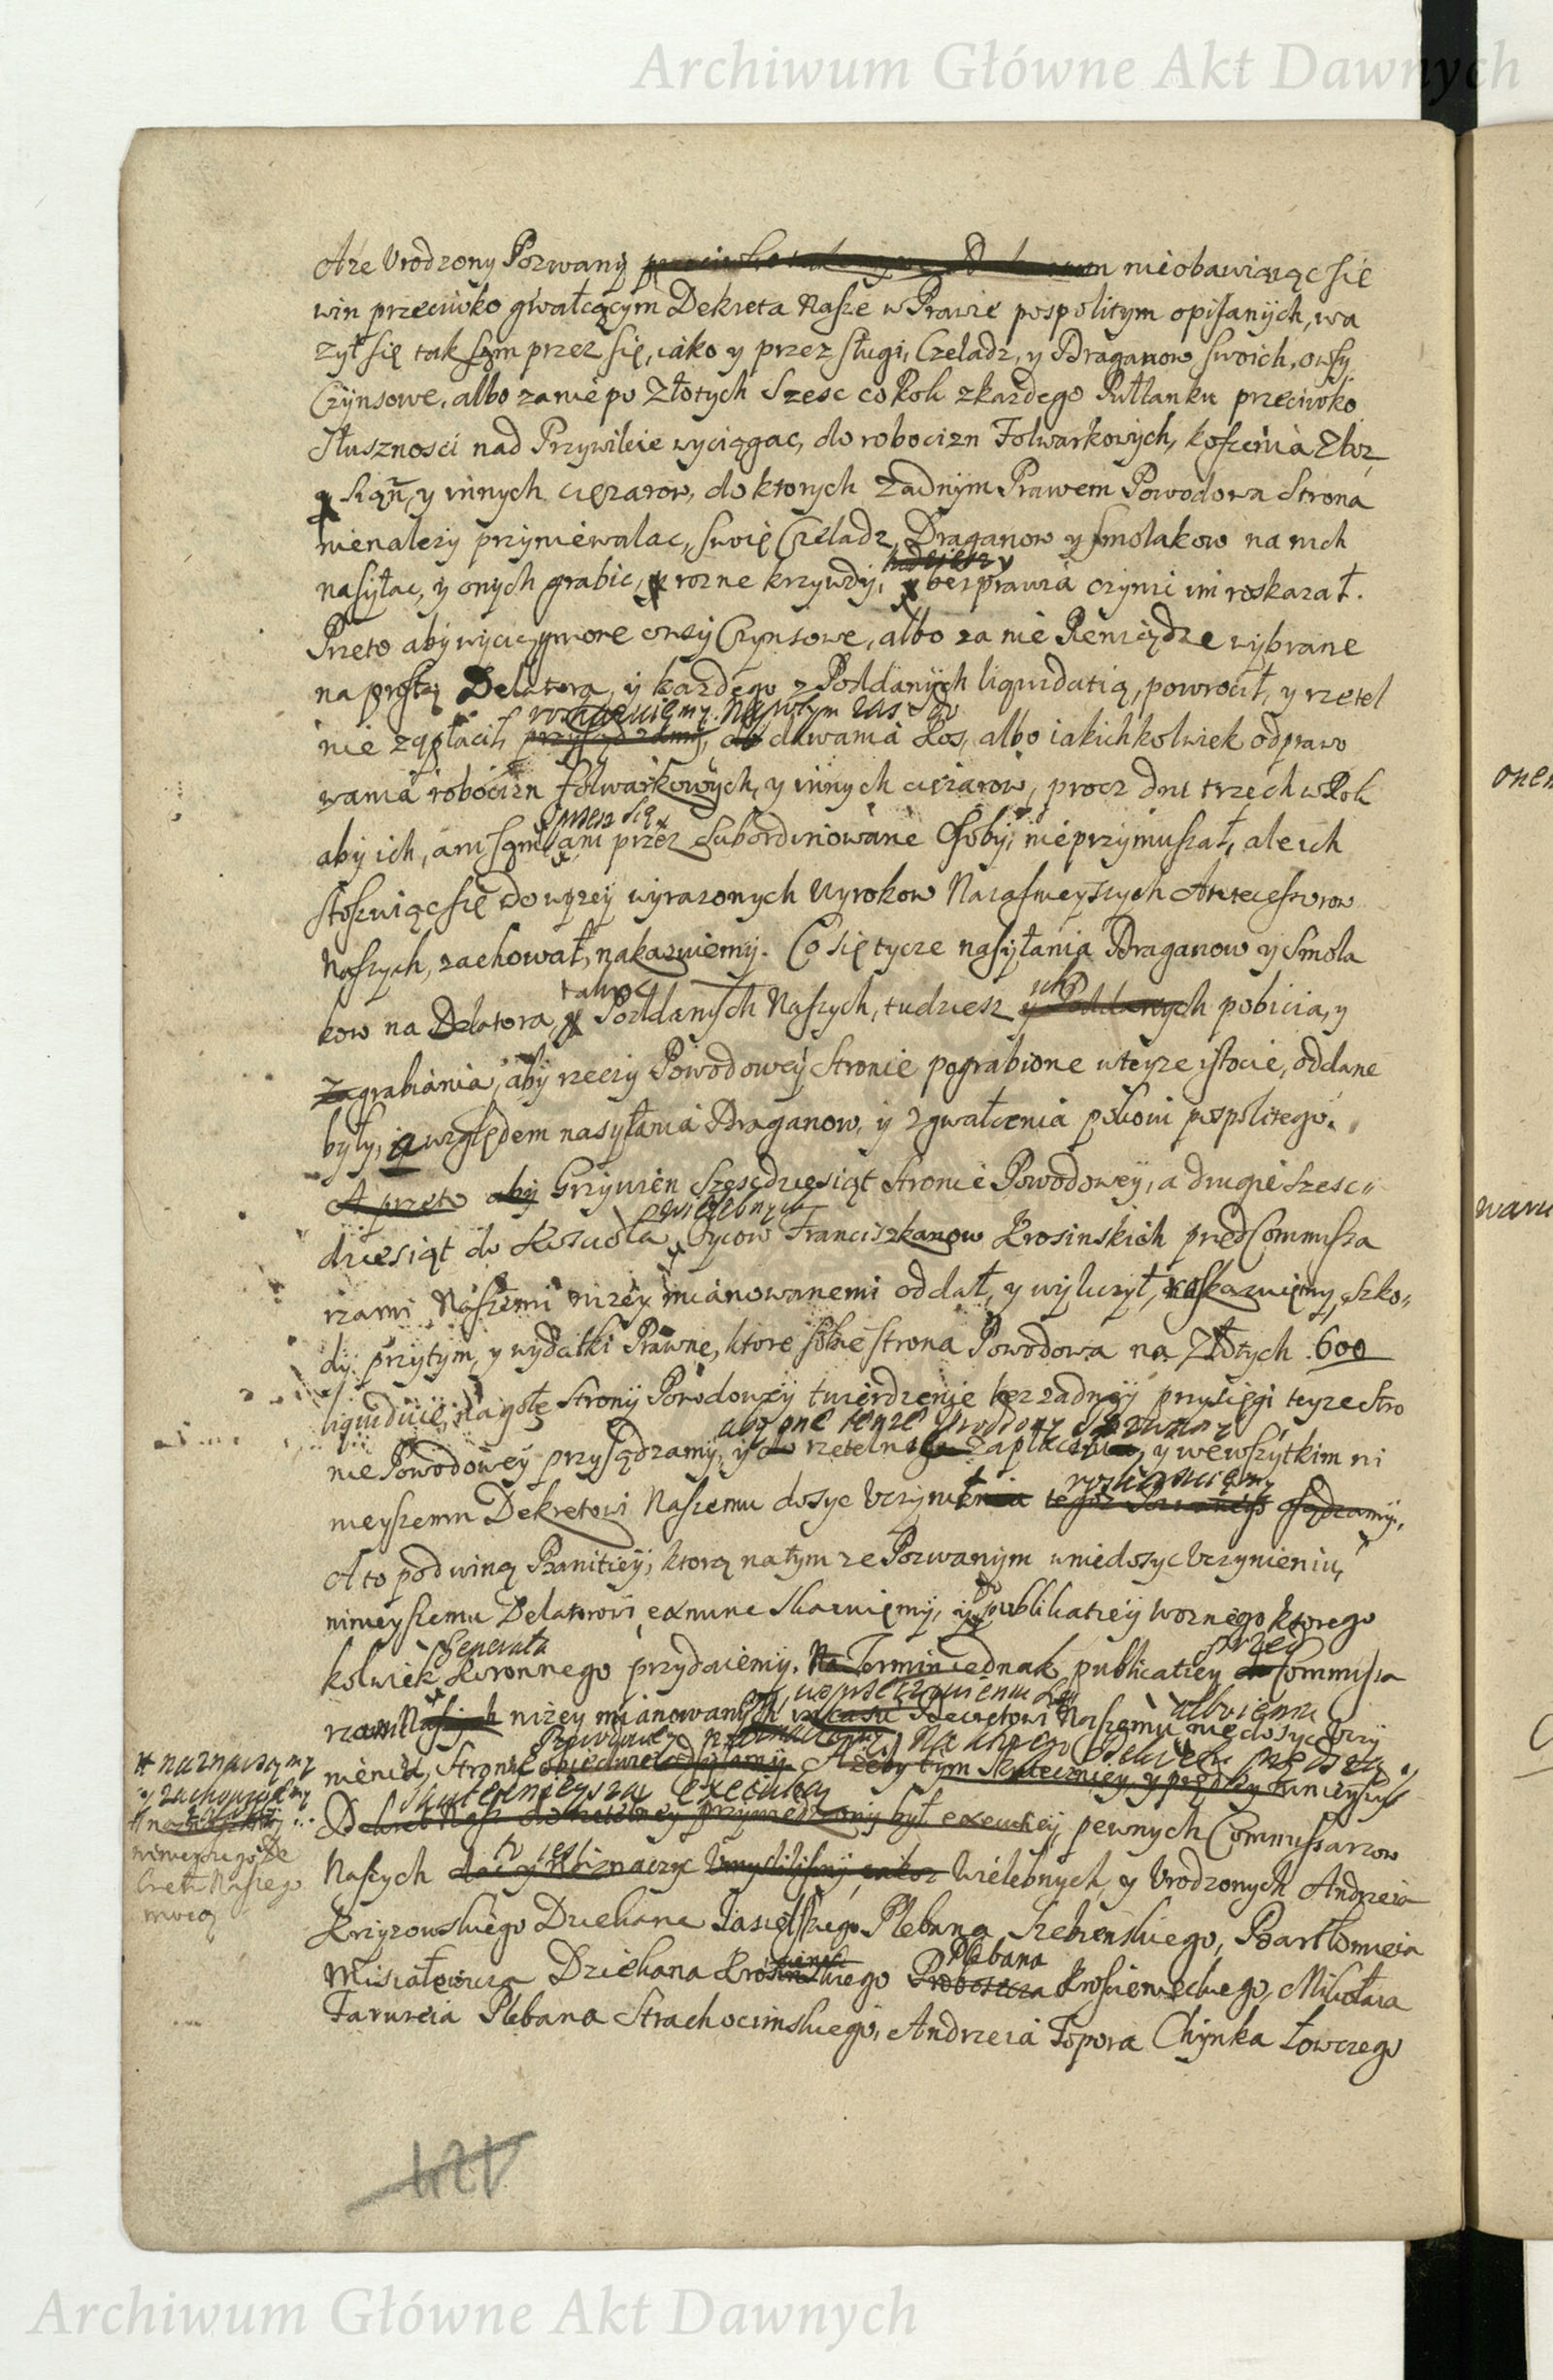 Archiwum Główne Akt Dawnych
Aze Vrodzony Pozwany nieobawiaiąc się
win przeciwko gwałcącym Dekreta Nasze w Prawie pospolitym opisanych, wa
zył się tak sąm przez się, iako y przez sługi, Czeladz, y Draganow swoich, owsy
Czynsowe, albo zanie po Złotych Szesc co Rok zkazdego Pułłanku przeciwko
Słusznosci nad Przywileie wyciągac, do robocizn Folwarkowych, koszenia Zboz
Siąn, y innych cięzarow, do ktorych Zadnym Prawem Powodowa Strona
nienalezy przyniewalac, swoię Czeladz, Draganow y Smolakow na nich
nasyłac, y onych grabic, rozne krzywdy, y bezprawia czynic im roskazał.
Przeto aby wyciągnione owsy Czynsowe, albo za nie Pieniądze wybrane
na prostą Delatora, y kazdego z Poddanych liquidatią, powrocił, y rzetel
roskazuiemy. Napotym zas do
nie zapłacił, przysądzamy, do dawania Kos, albo iakichkolwiek odprawo
wania robocizn folwarkowych, y innych cięzarow, procz dni trzech w Rok
przez się
aby ich, ani sąm ani przez Subordinowane Osoby, nieprzymuszał, ale ich
stosuiąc się do wyzey wyrazonych Wyrokow Naiasnieyszych Antecessorow
Naszych, zachował, nakazuiemy. Co się tycze nasyłania Draganow y Smola
takze ich
kow na Delatora, y Poddanych Naszych, tudziesz y Poddanych pobicia, y
Zagrabiania, aby rzeczy Powodowey Stronie pograbione wteyze istocie, oddane
były, a względem nasyłania Draganow, y zgwałcenia pokoiu pospolitego.
A przeto aby Grzywien Szescdziesiąt Stronie Powodowey, a drugie Szesc
Wielebnych
dziesiąt do Kosciola Oycow Franciszkanow Krosinskich przed Commissa
rzami Naszemi nizey mianowanemi oddał, y wyliczył, roskazuiemy, szko
dy przytym, y wydatki Prawne, ktore sobie strona Powodowa na Złotych 600
liquiduie, nagołe Strony Powodowey twierdzenie bez zadney przysięgi teyze Stro
aby one tenze Vrodzony Pozwany
nie Powodowey przysądzamy, y do rzetelnego zapłacenia, y wewszytkim ni
roskazuiemy
nieyszemu Dekretowi Naszemu dosyc Vczynienia tegoz Pozwanego osądzamy,
A to pod winą Banitiey, ktorą natym ze Pozwanym wniedosyc Vczynieniu
ninieyszemu Delatorowi exnunc skazuiemy, y do publikatiey Woznego ktorego
Generała przed
kolwiek Koronnego przydaiemy. Na Termin iednak publicatiey do Commissa
rzami Naszych nizey mianowanych in casu Decretowi Naszemu niedosyc Vczy
nienia, Stronie obiedwie odsyłamy. Azeby tym skuteczniey, y prędzey tanieyszy
skutecznieyszą executią
Dekret Nasz do rzetelney przywiedziony był executiey, pewnych Commissarzow
to iest
Naszych dac y Naznaczyc Vmyslilismy, iakoz Wielebnych, y Vrodzonych Andrzeia
Krzyzowskiego Dziekana Jasielskiego Plebana Szebenskiego, Bartłomieia
Plebana
Misiałowicza Dziekana Krosinskiego Proboszcza Krosienieckiego, Mikołaia
Plebana Strachocinskiego, Andrzeia Topora Chynka Łowczego
# naznaczamy
y zachowuiemy
ninieyszego De
cretu Naszego
mocą
421
onem
Archiwum Główne Akt Dawnych